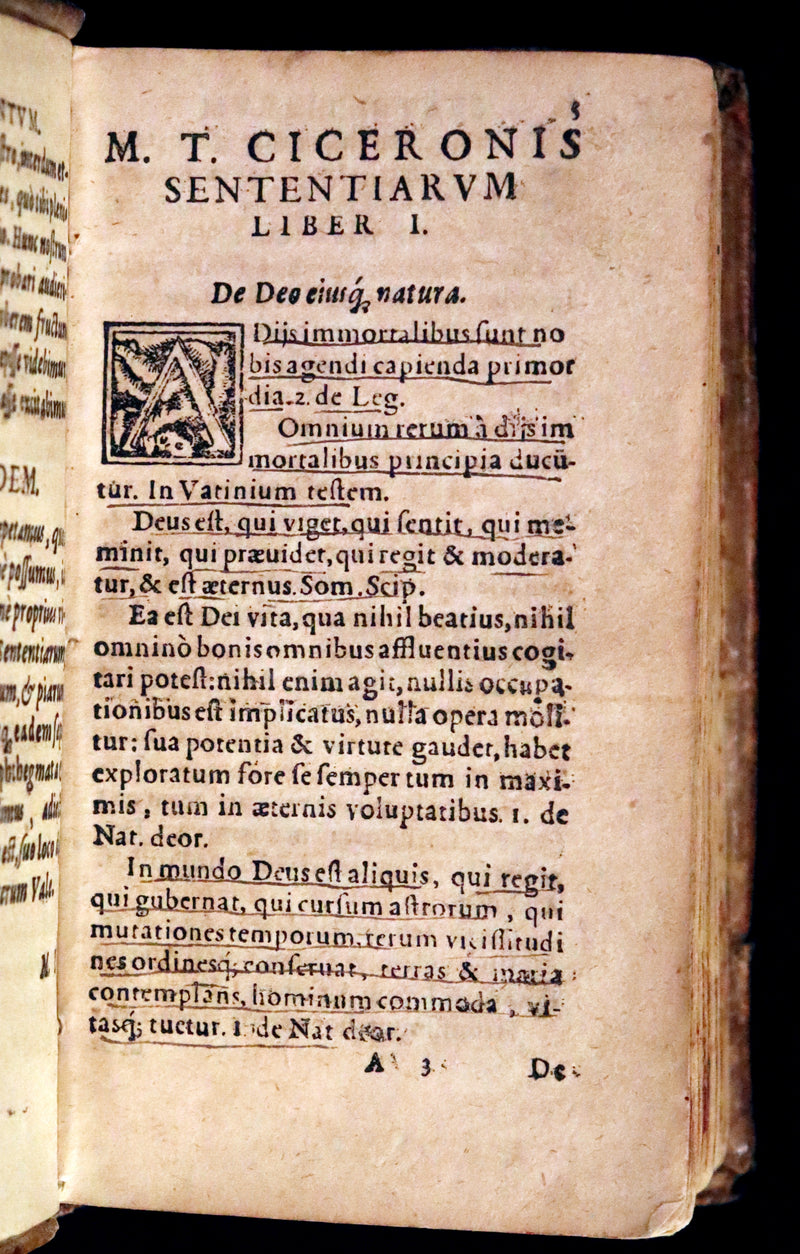 STVM.
DEM.
5
M. T. CICERONIS
SENTENTIARVM
LIBER I.
De Deo eiusq́; natura.
A Dijs immortalibus sunt no
bis agendi capienda primor
dia. 2. de Leg.
Omnium rerum à dijs im
mortalibus principia ducū-
tur. In Vatinium testem.
Deus est, qui viget, qui sentit, qui me-
minit, qui præuidet, qui regit & modera-
tur, & est æternus. Som. Scip.
Ea est Dei vita, qua nihil beatius, nihil
omninò bonis omnibus affluentius cogi-
tari potest: nihil enim agit, nullis occupa-
tionibus est implicatus, nulla opera moli-
tur: sua potentia & virtute gaudet, habet
exploratum fore se semper tum in maxi-
mis, tum in æternis voluptatibus. 1. de
Nat. deor.
In mundo Deus est aliquis, qui regit,
qui gubernat, qui cursum astrorum, qui
mutationes temporum, rerum vicissitudi
nes ordinesq́; conseruat, terras & maria
contemplans, hominum commoda, vi-
tasq́; tuetur. 1. de Nat deor.
A 3 De